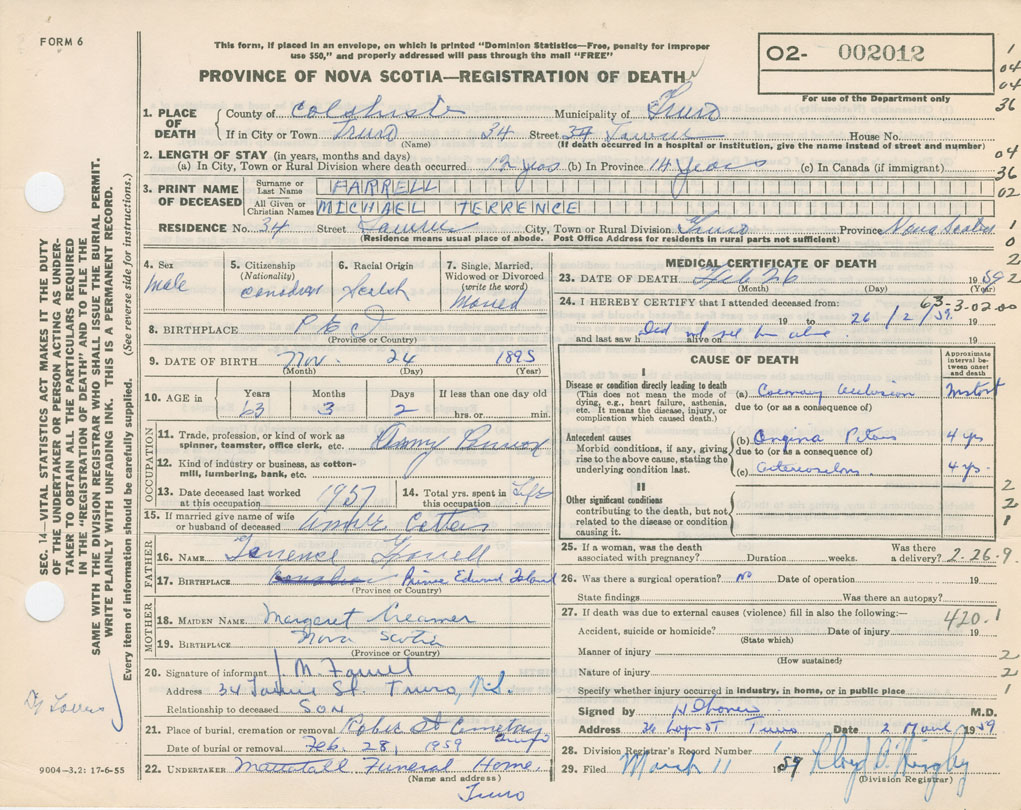 FORM 6
This form, if placed in an envelope, on which is printed "Dominion Statistics—Free, penalty for improper
use $50," and properly addressed will pass through the mail "FREE"
PROVINCE OF NOVA SCOTIA—REGISTRATION OF DEATH
02- 002012
For use of the Department only
1
04
04
36
04
36
02
1
0
2
2
1. PLACE OF DEATH
County of Municipality of Truro
If in City or Town Truro 34 Street 34 House No.
(Name) (If death occurred in a hospital or institution, give the name instead of street and number)
2. LENGTH OF STAY (in years, months and days)
(a) In City, Town or Rural Division where death occurred 12 years (b) In Province 14 Years (c) In Canada (if immigrant)
3. PRINT NAME OF DECEASED
Surname or Last Name FARRELL
All Given or Christian Names MICHAEL TERRENCE
RESIDENCE No. 34 Street City, Town or Rural Division Truro Province Nova Scotia
(Residence means usual place of abode. Post Office Address for residents in rural parts not sufficient)
4. Sex Male
5. Citizenship (Nationality) Canadian
6. Racial Origin
7. Single, Married, Widowed or Divorced (write the word) Married
8. BIRTHPLACE P E I
(Province or Country)
9. DATE OF BIRTH Nov. 24 1895
(Month) (Day) (Year)
10. AGE in Years Months Days If less than one day old
63 3 2 hrs. or min.
OCCUPATION
11. Trade, profession, or kind of work as
spinner, teamster, office clerk, etc. Army
12. Kind of industry or business, as cotton-
mill, lumbering, bank, etc.
13. Date deceased last worked at this occupation 1957
14. Total yrs. spent in this occupation Life
15. If married give name of wife
or husband of deceased Annie
FATHER
16. NAME Terrence Farrell
17. BIRTHPLACE Prince Edward Island
(Province or Country)
MOTHER
18. MAIDEN NAME Margaret Creamer
19. BIRTHPLACE Nova Scotia
(Province or Country)
20. Signature of informant J. M. Farrell
Address 34 St. Truro, N.S.
Relationship to deceased SON
21. Place of burial, cremation or removal Robie St Cemetery
Date of burial or removal Feb. 28, 1959
22. UNDERTAKER Mattatall Funeral Home
(Name and address)
Truro
MEDICAL CERTIFICATE OF DEATH
23. DATE OF DEATH Feb 26 1959
(Month) (Day) (Year)
63-3-02-00
24. I HEREBY CERTIFY that I attended deceased from:
19 to 26/2/59. 19
and last saw h alive on Did not see him alive 19
CAUSE OF DEATH
Approximate interval between onset and death
I
Disease or condition directly leading to death
(This does not mean the mode of
dying, e.g., heart failure, asthenia,
etc. It means the disease, injury, or
complication which caused death.)
(a) Coronary occlusion
due to (or as a consequence of)
Antecedent causes
Morbid conditions, if any, giving
rise to the above cause, stating the
underlying condition last.
(b) Angina Pectoris 4 yrs
due to (or as a consequence of)
(c) 4 yrs.
II
Other significant conditions
contributing to the death, but not
related to the disease or condition
causing it.
2
2
1
25. If a woman, was the death Was there
associated with pregnancy? Duration weeks. a delivery?
2-26-9
26. Was there a surgical operation? No Date of operation 19
State findings Was there an autopsy?
27. If death was due to external causes (violence) fill in also the following:—
420.1
Accident, suicide or homicide? Date of injury 19
(State which)
Manner of injury 2
(How sustained)
Nature of injury 2
Specify whether injury occurred in industry, in home, or in public place 1
Signed by M.D.
Address Truro Date 2 1959
28. Division Registrar's Record Number
29. Filed March 11 1959
(Division Registrar)
SEC. 14—VITAL STATISTICS ACT MAKES IT THE DUTY
OF THE UNDERTAKER OR PERSON ACTING AS UNDER-
TAKER TO OBTAIN ALL THE PARTICULARS REQUIRED
IN THE "REGISTRATION OF DEATH" AND TO FILE THE
SAME WITH THE DIVISION REGISTRAR WHO SHALL ISSUE THE BURIAL PERMIT.
WRITE PLAINLY WITH UNFADING INK. THIS IS A PERMANENT RECORD.
Every item of information should be carefully supplied. (See reverse side for instructions.)
9004—3.2: 17-6-55